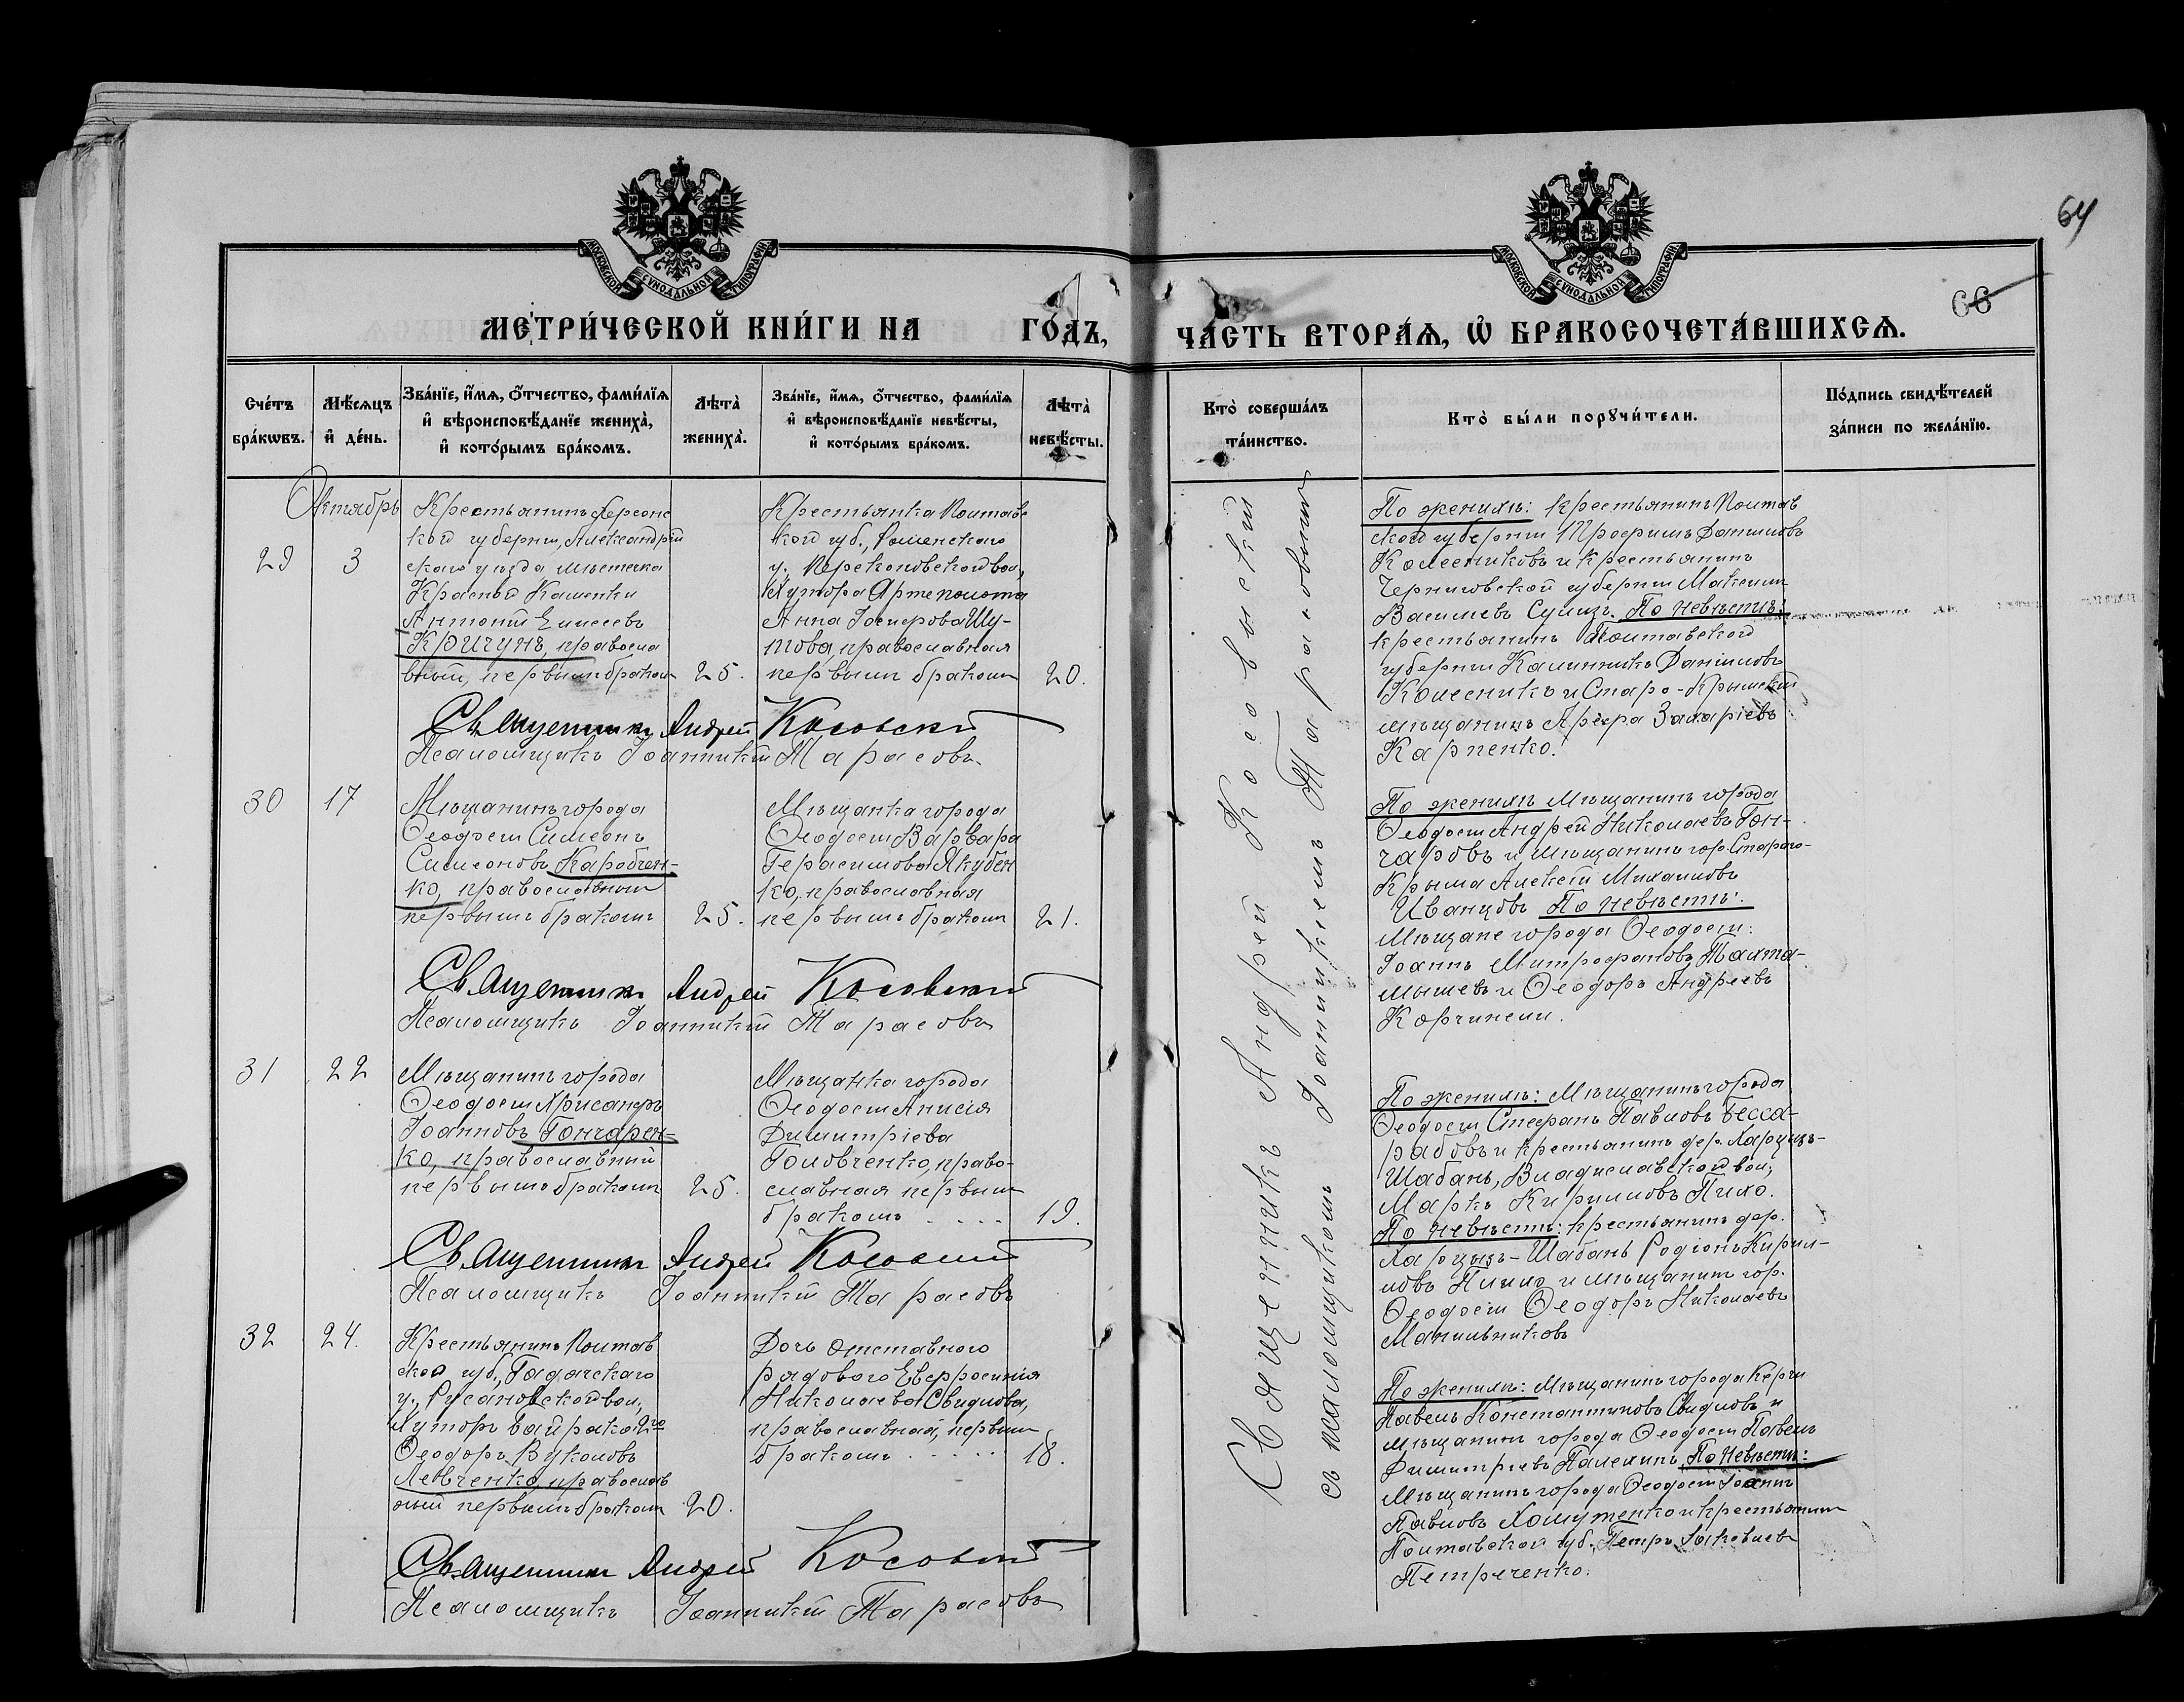 МОСКОВСКОЙ СУНОДАЛЬНОЙ ТИПОГРАФІИ
МЕТРИ́ЧЕСКОЙ КНИ́ГИ НА ГО́ДЪ,
Сче́тъ бра́кѡвъ.
Мѣ́сяцъ и҆ де́нь.
Зва́нїе, и҆́мѧ, ѻ҆́тчество, фами́лїѧ и҆ вѣроисповѣ́данїе жениха̀, и҆ кото́рымъ бра́комъ.
Лѣта̀ жениха̀.
Зва́нїе, и҆́мѧ, ѻ҆́тчество, фами́лїѧ и҆ вѣроисповѣ́данїе невѣ́сты, и҆ кото́рымъ бра́комъ.
Лѣта̀ невѣ́сты.
Октябрь
29
3
Крестьянинъ Херсонс
кой губерніи, Александрій
скаго уѣзда мѣстечка
Красной Каменки
Антоній Елисеевъ
Кричунъ, правосла
вный, первымъ бракомъ
25.
Крестьянка Полтавс
кой губ., Роменскаго
у., Перекоповской вол.,
Хутора Артеполота
Анна Іосифова Шу-
това, православная
первымъ бракомъ
20.
Священникъ Андрей Косовскій
Псаломщикъ Іоанникій Тарасовъ
30
17
Мѣщанинъ города
Ѳеодосіи Симеонъ
Симеоновъ Каробчен-
ко, православный
первымъ бракомъ
25.
Мѣщанка города
Ѳеодосіи Варвара
Герасимова Якубен
ко, православная
первымъ бракомъ
21.
Священникъ Андрей Косовский
Псаломщикъ Іоанникій Тарасовъ
31
22
Мѣщанинъ города
Ѳеодосіи Хрисанфъ
Іоанновъ Гончарен-
ко, православный
первымъ бракомъ
25.
Мѣщанка города
Ѳеодосіи Анисія
Димитріева
Головченко, право-
славная первымъ
бракомъ . . . .
19.
Священникъ Андрей Косовскій
Псаломщикъ Іоанникій Тарасовъ
32
24.
Крестьянинъ Полтав
ской губ., Гадячскаго
у., Русановской вол.,
Ѳеодоръ Вуколовъ
Левченко, православ
ный первымъ бракомъ
20.
Дочь отставного
рядового Евфросинія
Николаева Свидлова,
православная, первымъ
бракомъ . . . . .
18.
Священникъ Андрей Косовскій
Псаломщикъ Іоанникій Тарасовъ
64
66
МОСКОВСКОЙ СУНОДАЛЬНОЙ ТИПОГРАФІИ
ЧА́СТЬ ВТОРА́Ѧ, Ѡ҆ БРАКОСОЧЕТА́ВШИХСѦ.
Кто̀ соверша́лъ та́инство.
Кто̀ бы́ли порꙋчи́тели.
По́дпись свидѣ́телей за́писи по жела́нїю.
Священникъ Андрей Косовскій
съ псаломщикомъ Іоанникіемъ Тарасовымъ
По женихѣ: крестьянинъ Полтав
ской губерніи Трофимъ Даниловъ
Колесниковъ и крестьянинъ
Черниговской губерніи Максимъ
Василіевъ Сулизъ. По невѣстѣ:
крестьянинъ Полтавской
губерніи Калинникъ Даніиловъ
Колесникъ и Старо-Крымскій
мѣщанинъ Захаріевъ
Карпенко.
По женихѣ Мѣщанинъ города
Ѳеодосіи Андрей Николаевъ Гон-
чаровъ и мѣщанинъ гор. Стараго-
Крыма Алексѣй Михаиловъ
Иванцовъ По невѣстѣ:
Мѣщане города Ѳеодосіи:
Іоаннъ Митрофановъ Тахта-
мышевъ и Ѳеодоръ Андреевъ
По женихѣ: Мѣщанинъ города
Ѳеодосіи Стефанъ Павловъ Бесса-
рабовъ и крестьянинъ дер. Харцызъ-
Шабань, Владиславской вол.,
Маркъ Кирилловъ Пихо.
По невѣстѣ: крестьянинъ дер.
Харцызъ-Шабань Родіонъ Кирил-
ловъ Пихо и мѣщанинъ гор.
Ѳеодосіи Ѳеодоръ Николаевъ
По женихѣ: Мѣщанинъ города Керчи
Павелъ Константиновъ Свидловъ и
мѣщанинъ города Ѳеодосіи Павелъ
Димитріевъ По невѣстѣ:
Мѣщанинъ города Ѳеодосіи Іоаннъ
Павловъ Хомутенко и крестьянинъ
Полтавской губ., Петръ Іаковлевъ
Петреченко.